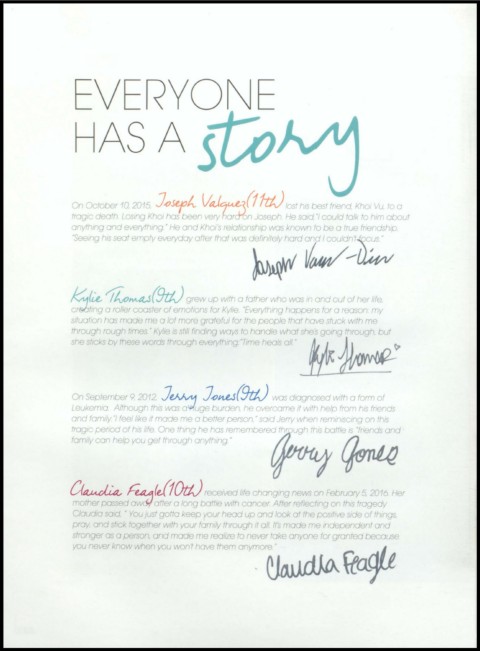 EVERYONE
HAS A story
On October 10, 2015, Joseph Valquez(11th) lost his best friend, Khoi Vu, to a
tragic death. Losing Khoi has been very hard on Joseph. He said "I could talk to him about
anything and everything." He and Khoi's relationship was known to be a true friendship.
"Seeing his seat empty everyday after that was definitely hard and I couldn't focus."
Joseph
Kylie Thomas(9th) grew up with a father who was in and out of her life,
creating a roller coaster of emotions for Kylie. "Everything happens for a reason; my
situation has made me a lot more grateful for the people that have stuck with me
through rough times." Kylie is still finding ways to handle what she's going through, but
she sticks by these words through everything "Time heals all."
Kylie Thomas
On September 9, 2012, Jerry Jones(9th) was diagnosed with a form of
Leukemia. Although this was a huge burden, he overcame it with help from his friends
and family. "I feel like it made me a better person." said Jerry when reminiscing on this
tragic period of his life. One thing he has remembered through this battle is "friends and
family can help you get through anything."
Jerry Jones
Claudia Feagle(10th) received life changing news on February 5, 2016. Her
mother passed away after a long battle with cancer. After reflecting on this tragedy
Claudia said, " You just gotta keep your head up and look at the positive side of things,
pray, and stick together with your family through it all. It's made me independent and
stronger as a person, and made me realize to never take anyone for granted because
you never know when you won't have them anymore."
Claudia Feagle